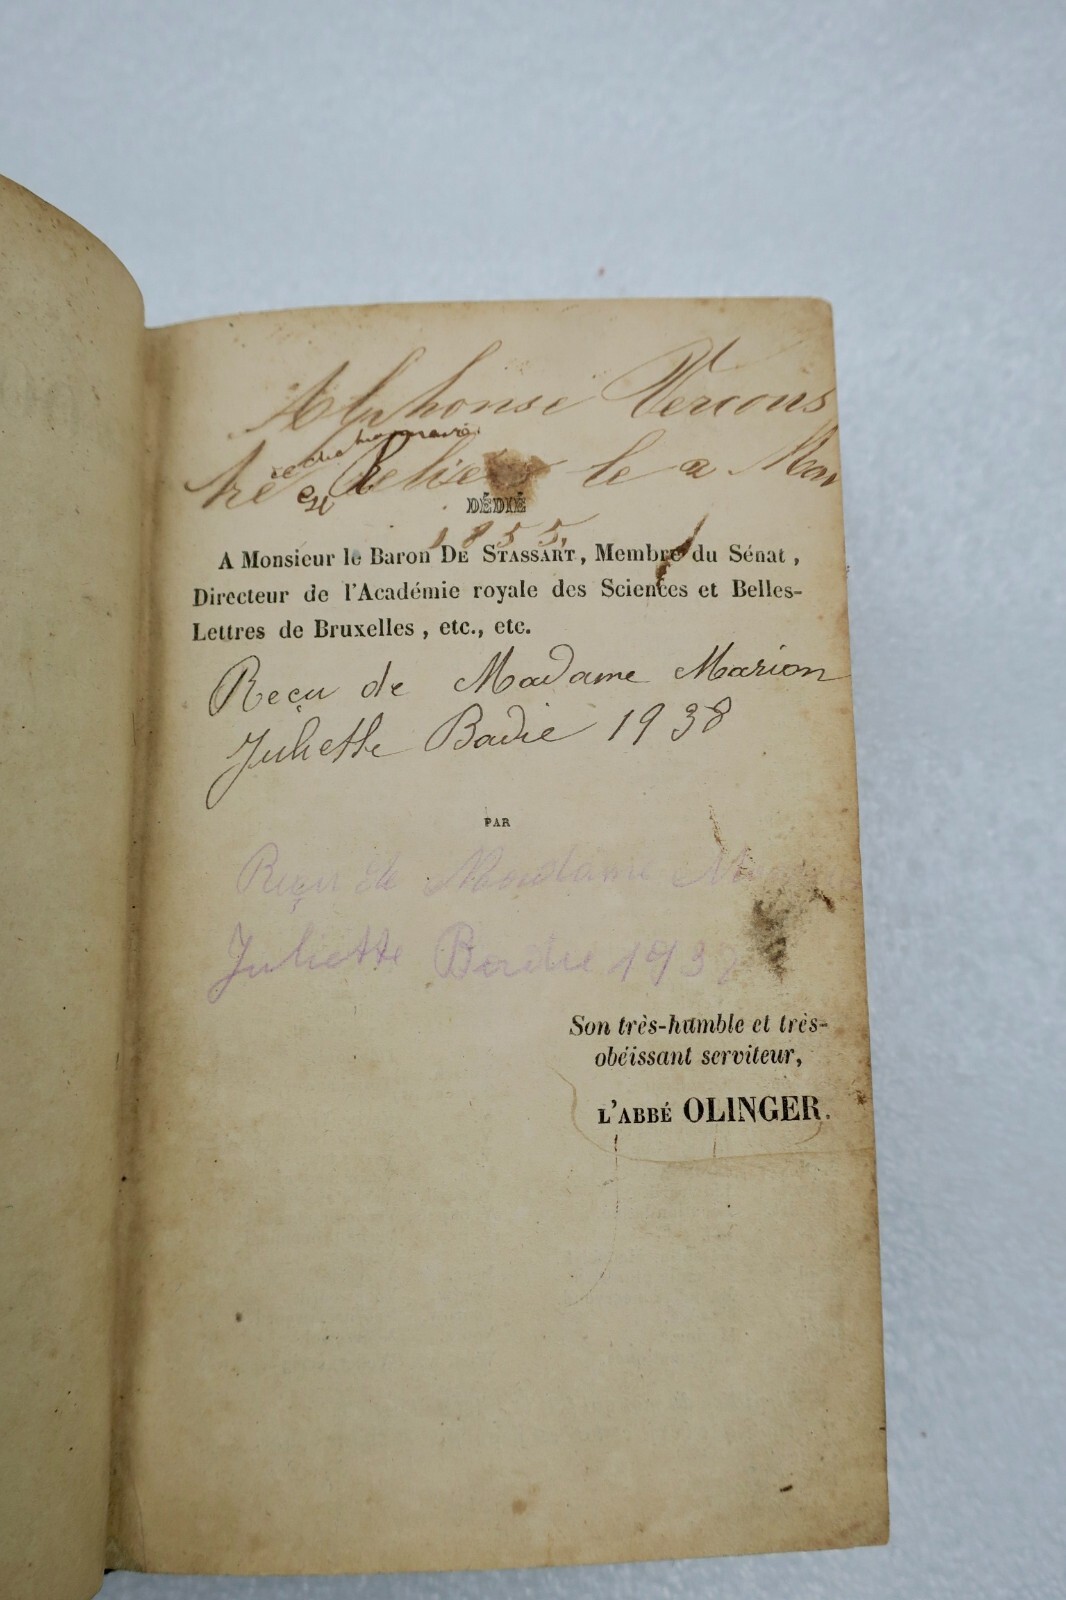 Alphonse
le
DÉDIÉ
1855
A Monsieur le Baron DE STASSART, Membre du Sénat,
Directeur de l'Académie royale des Sciences et Belles-
Lettres de Bruxelles, etc., etc.
Reçu de Madame Marion
Juliette Badie 1938
PAR
Reçu de Madame
Juliette 193
Son très-humble et très-
obéissant serviteur,
L'ABBÉ OLINGER.